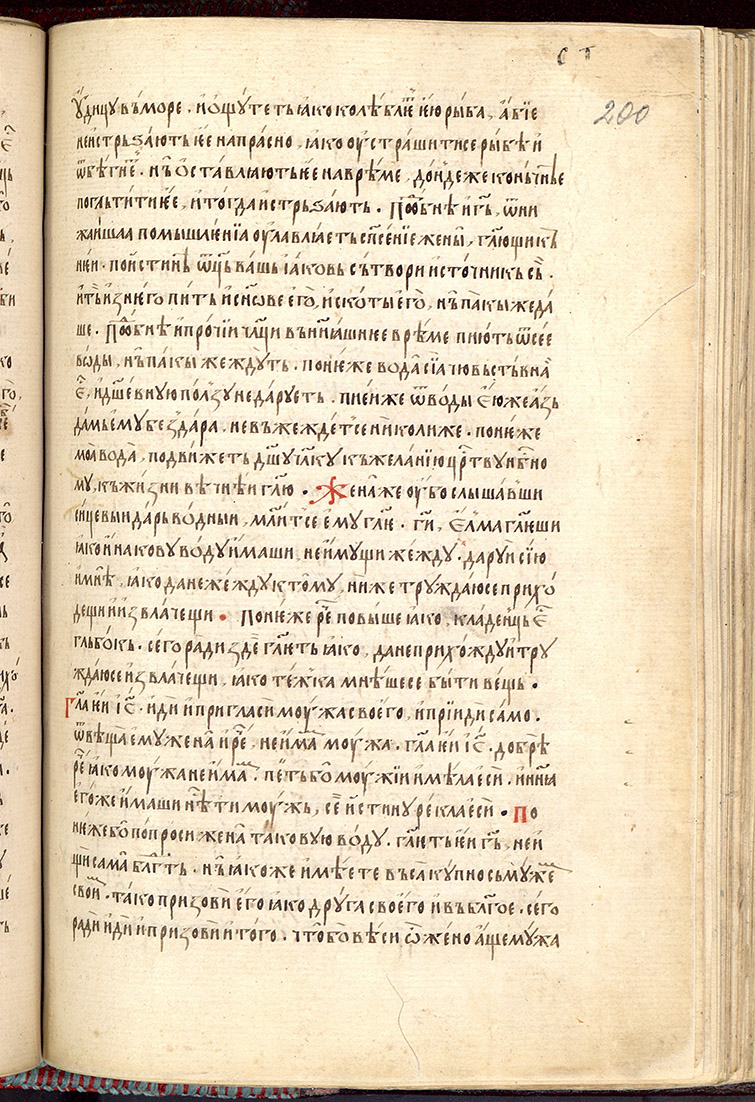 с҃
200
ѹ҆дицꙋ въ море . и҆ ощꙋтеть ꙗко колѣблѥ҆нїю рыба , а҆бїе
не истръꙁають ѥе напрасно , ꙗко ѹстрашитисе рыбѣ и҆
ѿбѣгнꙋ . нъ ѡставлꙗють ѥе на врѣме , дондеже конъчнѣе
погльтити ѥе , и тогда истръꙁають . Подобнѣ и гь҃ , ѿ ни
жаишаа помышлѥнїа ѹлавлꙗеть сп҃сенїе жены , гл҃ющик
нѥи . поистинѣ ѿц҃ь вашь ꙗковь сътвори источникъ съ .
и тъ иꙁ него пить и сн҃ове его , и скоты его , нъ пакы жеда
ше . Подобнѣ и прочїи чл҃ци въ нн҃ꙗшнѥе врѣме пиють ѿ сее
воды , нъ пакы жеждꙋть . понѥже вода сїа чювьствьнаа
ѥ҆ , и дш҃евную полꙁꙋ не дарꙋеть . пиеи же ѿ воды ею же аꙁь
дамь емꙋ беꙁ дара , не въжеждетсе николиже . понѥже
моа вода , подвижеть дш҃ꙋ чл҃кꙋ къ желанїю цр҃твꙋ нбⷭ҇но
мꙋ , къ жиꙁни вѣчнѣи гл҃ю . Жена же ѹбо слышавши
сицевыи дарь водныи , млитсе емꙋ гл҃ѥ . ги҃ , елма гл҃ѥши
ꙗко инаковꙋ водꙋ имаши , не имꙋщи жеждꙋ . дарꙋи сїю
и мнѣ , ꙗко да не жеждꙋ к томꙋ , ниже трꙋждаюсе прихо
дещи и иꙁвлачещи . Понѥже рѣ повыше ꙗко , кладеньць ѥ҆
глъбокъ . сего ради ꙁде гл҃ѥть ꙗко , да не прихождꙋ и трꙋ
ждаюсе иꙁвлачещи , ꙗко тежка мнѣшесе быти вещь .
Гл҃а ѥи іс҃ . иди и пригласи моѹжа своего , и прїиди само .
ѿвѣща емꙋ жена и рѣ , не има моѹжа . гл҃а ѥи іс҃ . добрѣ
рѣ ꙗко моѹжа не има . петь бо моѹжїи имѣла еси . и нн҃ꙗ
егоже имаши нѣ ти моѹжь , се истинꙋ рекла еси . По
нѥже бо попроси жена таковꙋю водꙋ . гл҃ѥть ѥи гь҃ , не и
щи сама блг҃ть . нъ ꙗкоже имѣете въса кꙋпно съ мꙋже
свои . тако приꙁови его ꙗко дрꙋга своего и въ блг҃ое . сего
ради иди и приꙁови и того . что бо вѣси ѡ жено аще мꙋжа